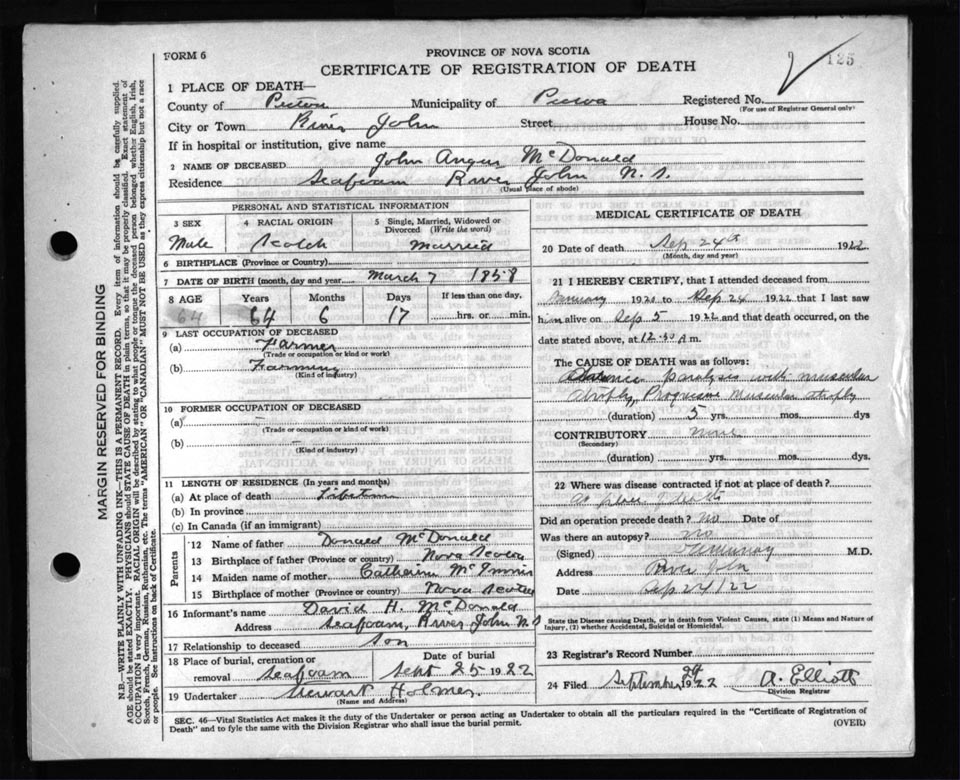 FORM 6
PROVINCE OF NOVA SCOTIA
CERTIFICATE OF REGISTRATION OF DEATH
125
1 PLACE OF DEATH—
County of Pictou Municipality of Pictou Registered No.
(For use of Registrar General only)
City or Town River John Street House No.
If in hospital or institution, give name
2 NAME OF DECEASED John Angus McDonald
Residence Seafoam River John N.S.
(Usual place of abode)
PERSONAL AND STATISTICAL INFORMATION
3 SEX Male
4 RACIAL ORIGIN Scotch
5 Single, Married, Widowed or Divorced (Write the word) Married
6 BIRTHPLACE (Province or Country)
7 DATE OF BIRTH (month, day and year March 7 1858
8 AGE Years Months Days If less than one day,
64 64 6 17 hrs. or min.
9 LAST OCCUPATION OF DECEASED
(a) Farmer
(Trade or occupation or kind or work)
(b) Farming
(Kind of industry)
10 FORMER OCCUPATION OF DECEASED
(a) –
(Trade or occupation or kind of work)
(b) –
(Kind of industry)
11 LENGTH OF RESIDENCE (In years and months)
(a) At place of death
(b) In province
(c) In Canada (if an immigrant)
Parents
12 Name of father Donald McDonald
13 Birthplace of father (Province or country) Nova Scotia
14 Maiden name of mother Catharine McInnis
15 Birthplace of mother (Province or country) Nova Scotia
16 Informant's name David H. McDonald
Address Seafoam, River John N S
17 Relationship to deceased Son
18 Place of burial, cremation or removal Seafoam
Date of burial Sept 25 1922
19 Undertaker Stewart Holmes
(Name and Address)
MEDICAL CERTIFICATE OF DEATH
20 Date of death Sep 24th 1922
(Month, day and year)
21 I HEREBY CERTIFY, that I attended deceased from
January 1920 to Sep 24 1922 that I last saw
him alive on Sep 5 1922 and that death occurred, on the
date stated above, at 12.30 A m.
The CAUSE OF DEATH was as follows:
paralysis with muscular
atrophy, Progressive Muscular atrophy
(duration) 5 yrs. mos. dys
CONTRIBUTORY None
(Secondary)
(duration) yrs. mos. dys.
22 Where was disease contracted if not at place of death?
At place of death
Did an operation precede death? No Date of
Was there an autopsy? No
(Signed) M.D.
Address River John
Date Sep 24/22
State the Disease causing Death, or in death from Violent Causes, state (1) Means and Nature of
Injury, (2) whether Accidental, Suicidal or Homicidal.
23 Registrar's Record Number
24 Filed September 24 1922 A. Elliott
Division Registrar
SEC. 46—Vital Statistics Act makes it the duty of the Undertaker or person acting as Undertaker to obtain all the particulars required in the "Certificate of Registration of
Death" and to fyle the same with the Division Registrar who shall issue the burial permit.
(OVER)
MARGIN RESERVED FOR BINDING
N.B.—WRITE PLAINLY WITH UNFADING INK—THIS IS A PERMANENT RECORD. Every item of information should be carefully supplied.
AGE should be stated EXACTLY. PHYSICIANS should STATE CAUSE OF DEATH in plain terms, so that it may be properly classified. Exact statement of
OCCUPATION is very important. RACIAL ORIGIN will be described by stating to what people or tongue the deceased person belonged whether English, Irish,
Scotch, French, German, Russian, Ruthenian, etc. The terms "AMERICAN" or "CANADIAN" MUST NOT BE USED as they express citizenship but not a race
or people. See instructions on back of Certificate.